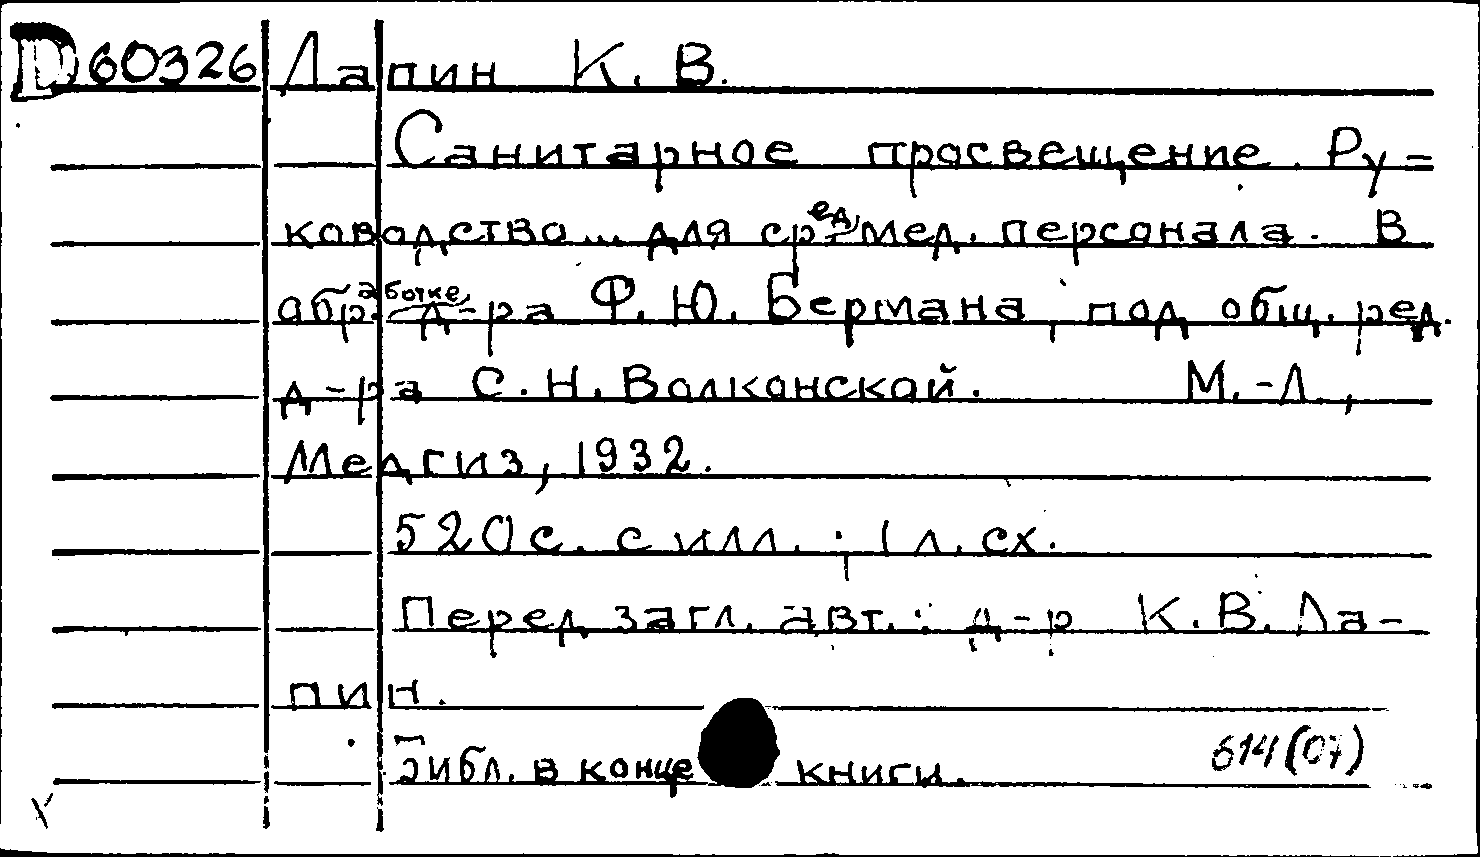 D60326 Лапин К. В.
Санитарное просвещение. Ру=
ководство... для сред. мед. персонала. В
обработке д-ра Ф. Ю. Бермана, под общ. ред.
д-ра С. Н. Волконской. М.-Л.,
Медгиз, 1932.
520 с. с илл.; 1 л. сх.
Перед загл. авт.: д-р К. В. Ла-
пин.
Библ. в конце книги.
614(07)